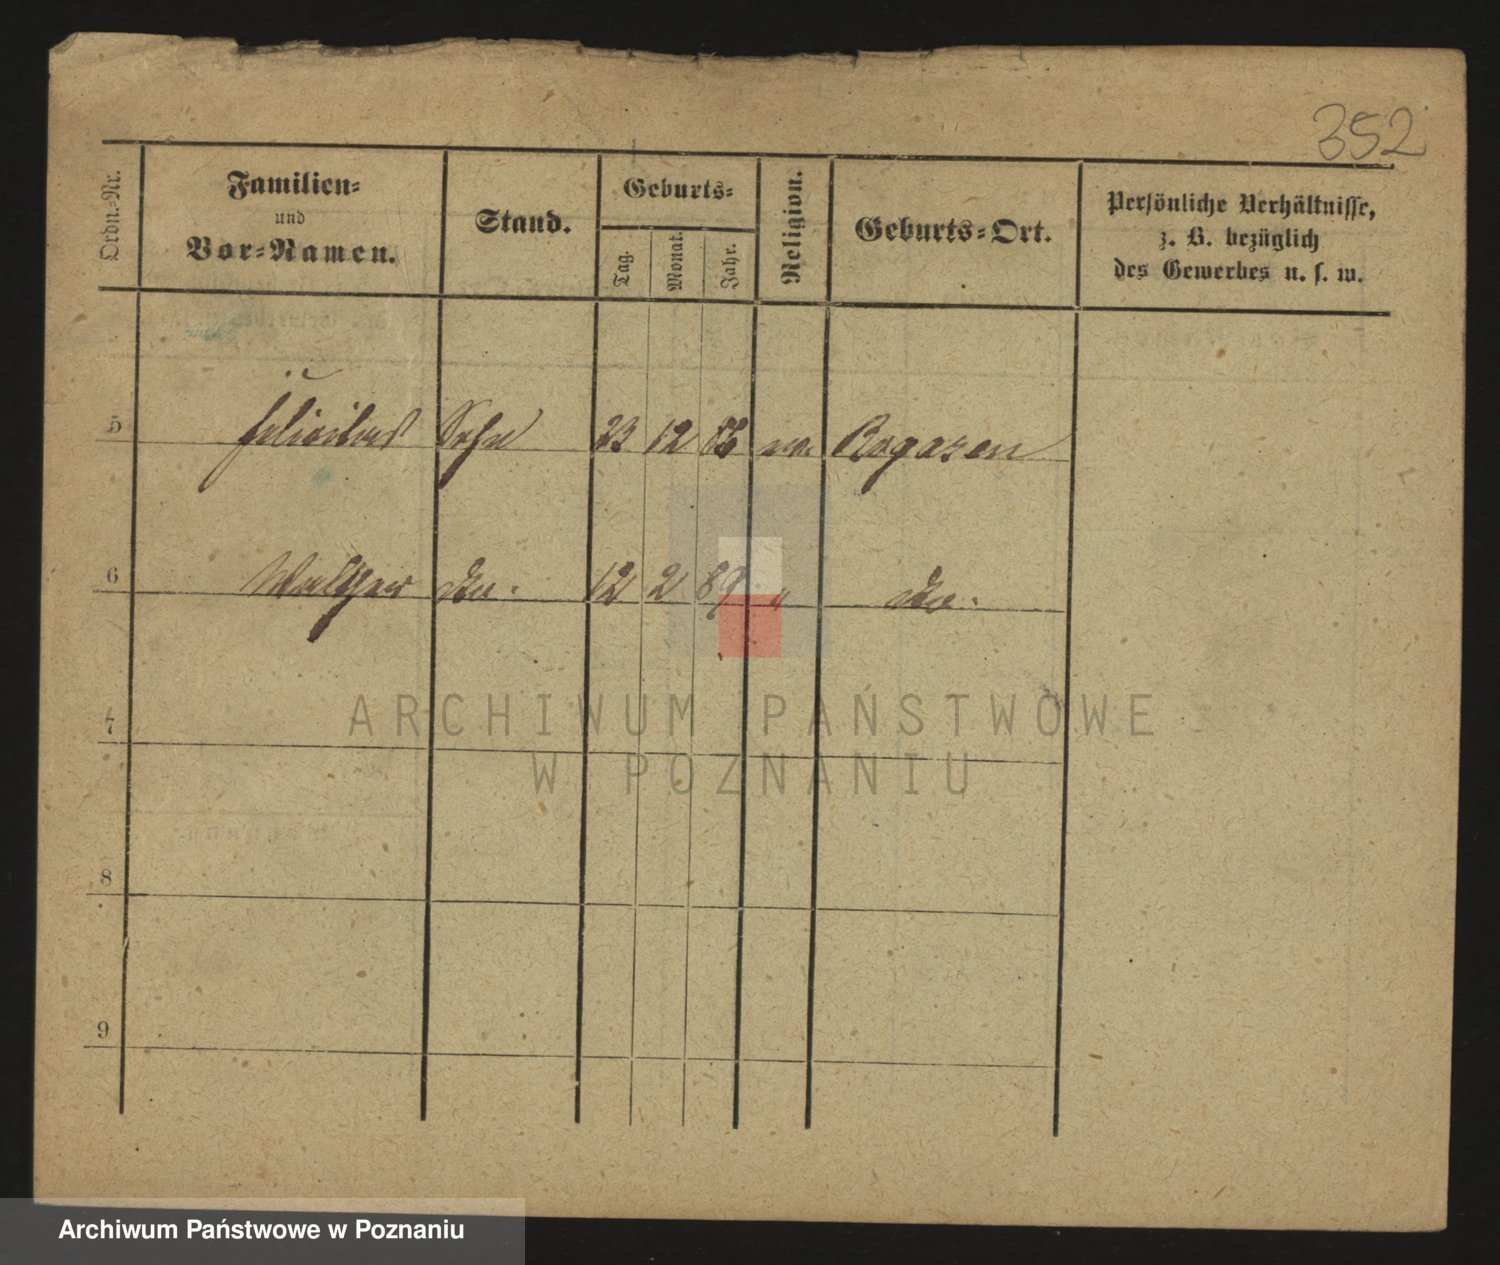 352
Ordn.-Nr.
Familien-
und
Vor-Namen.
Stand.
Geburts-
Tag.
Monat.
Jahr.
Religion.
Geburts-Ort.
Persönliche Verhältnisse,
z. B. bezüglich
des Gewerbes u. s. w.
5 Sohn 23 12 86 Rogasen
6 do. 12 2 89 " do.
7
8
9
ARCHIWUM PAŃSTWOWE
W POZNANIU
Archiwum Państwowe w Poznaniu